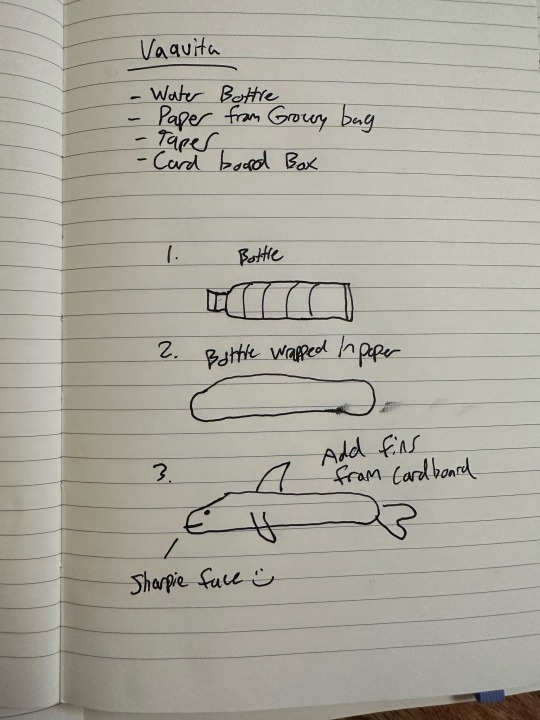 Vaquita
- Water Bottle
- Paper from Grocery bag
- Tapes
- Card board Box
1. Bottle
2. Bottle wrapped in paper
3. Add fins
from Cardboard
Sharpie face